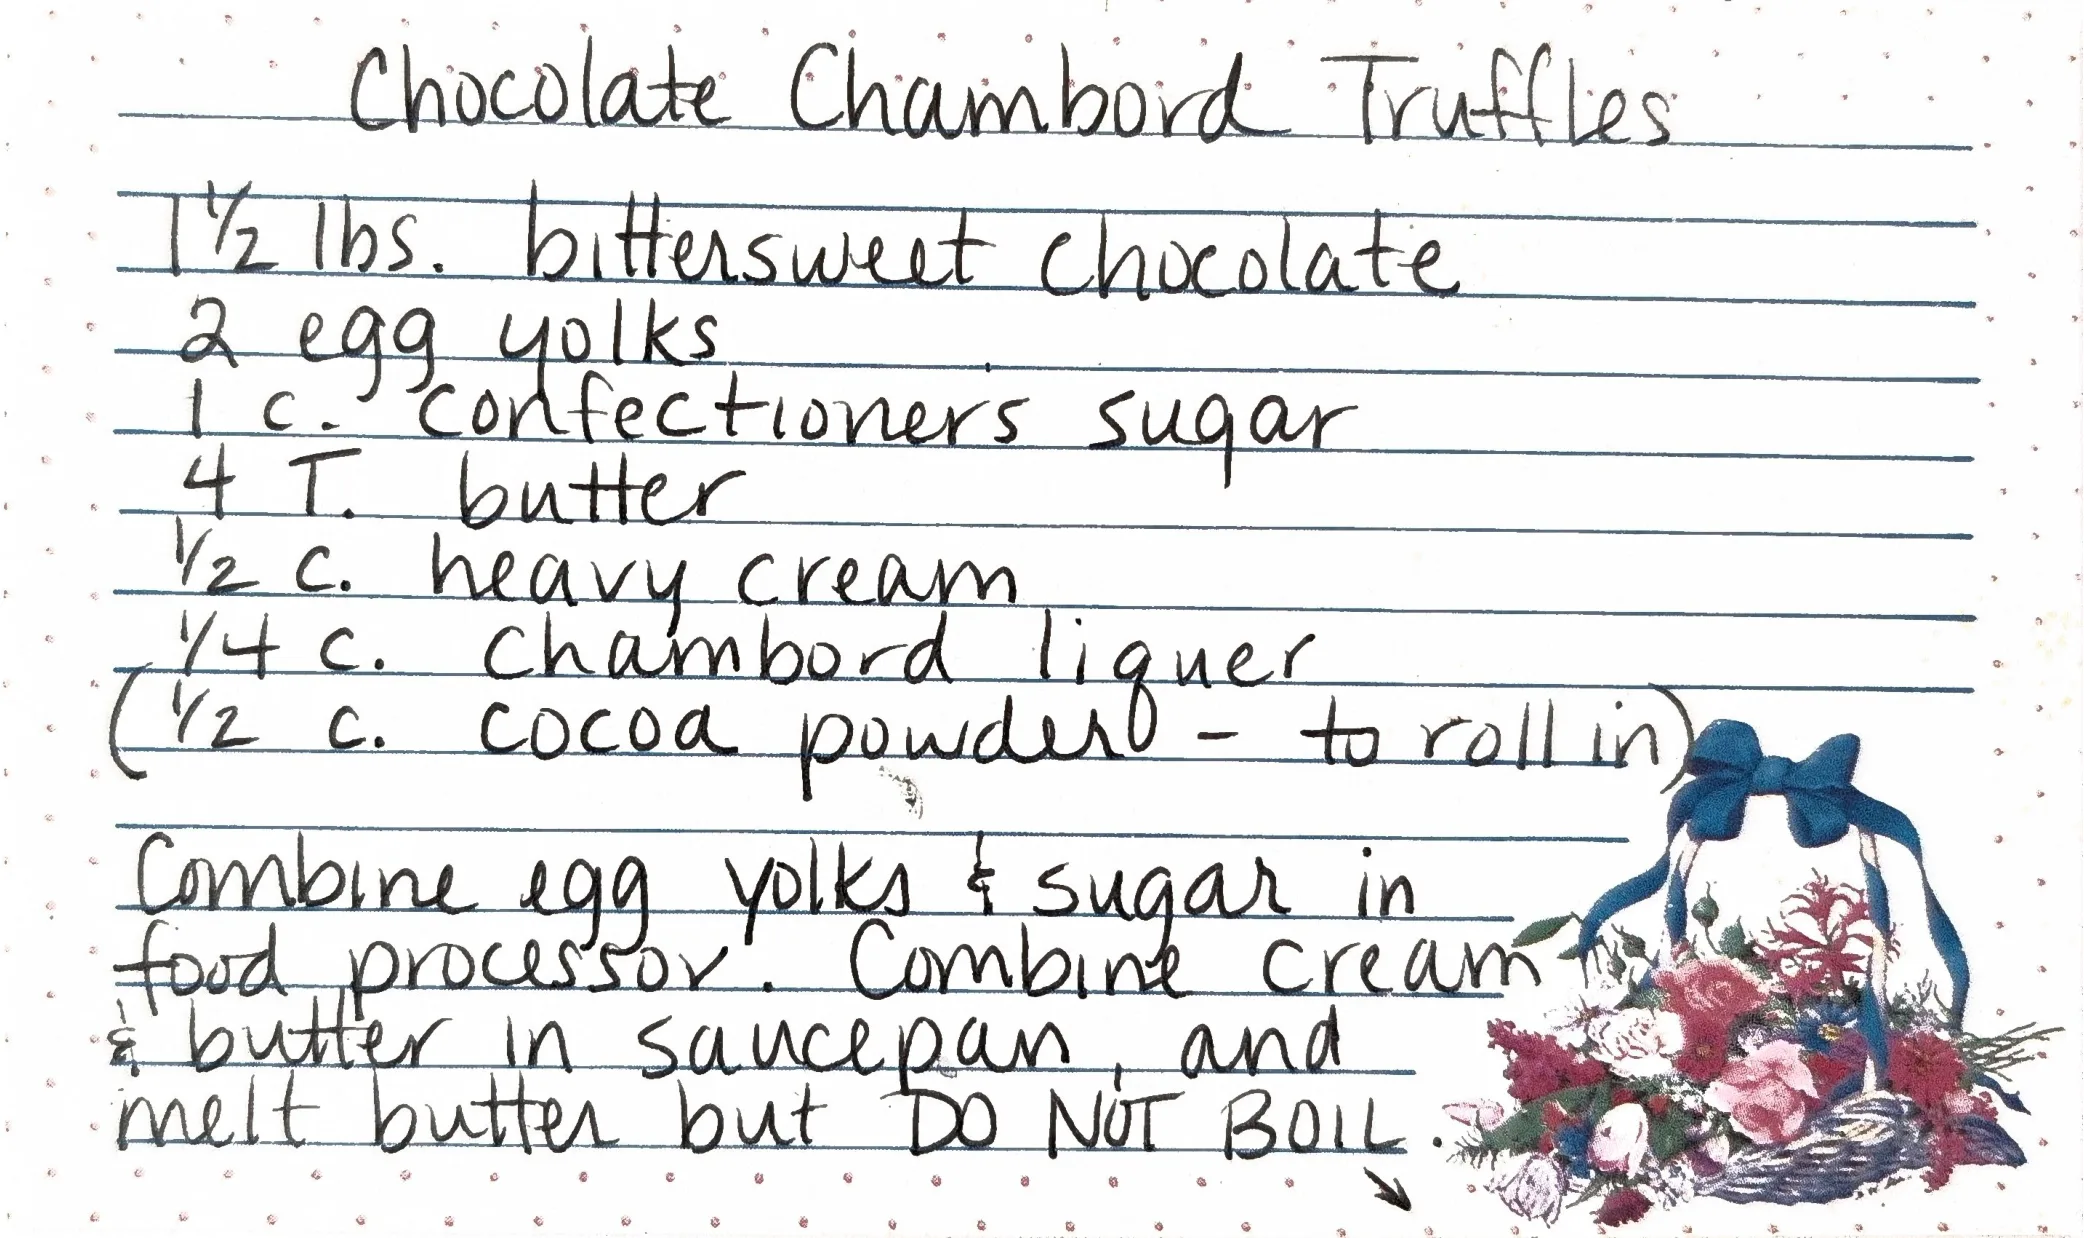 Chocolate Chambord Truffles
1 1/2 lbs. bittersweet chocolate
2 egg yolks
1 c. confectioners sugar
4 T. butter
1/2 c. heavy cream
1/4 c. chambord liquer
(1/2 c. cocoa powder - to roll in)
Combine egg yolks & sugar in
food processor. Combine cream
& butter in saucepan, and
melt butter but DO NOT BOIL.